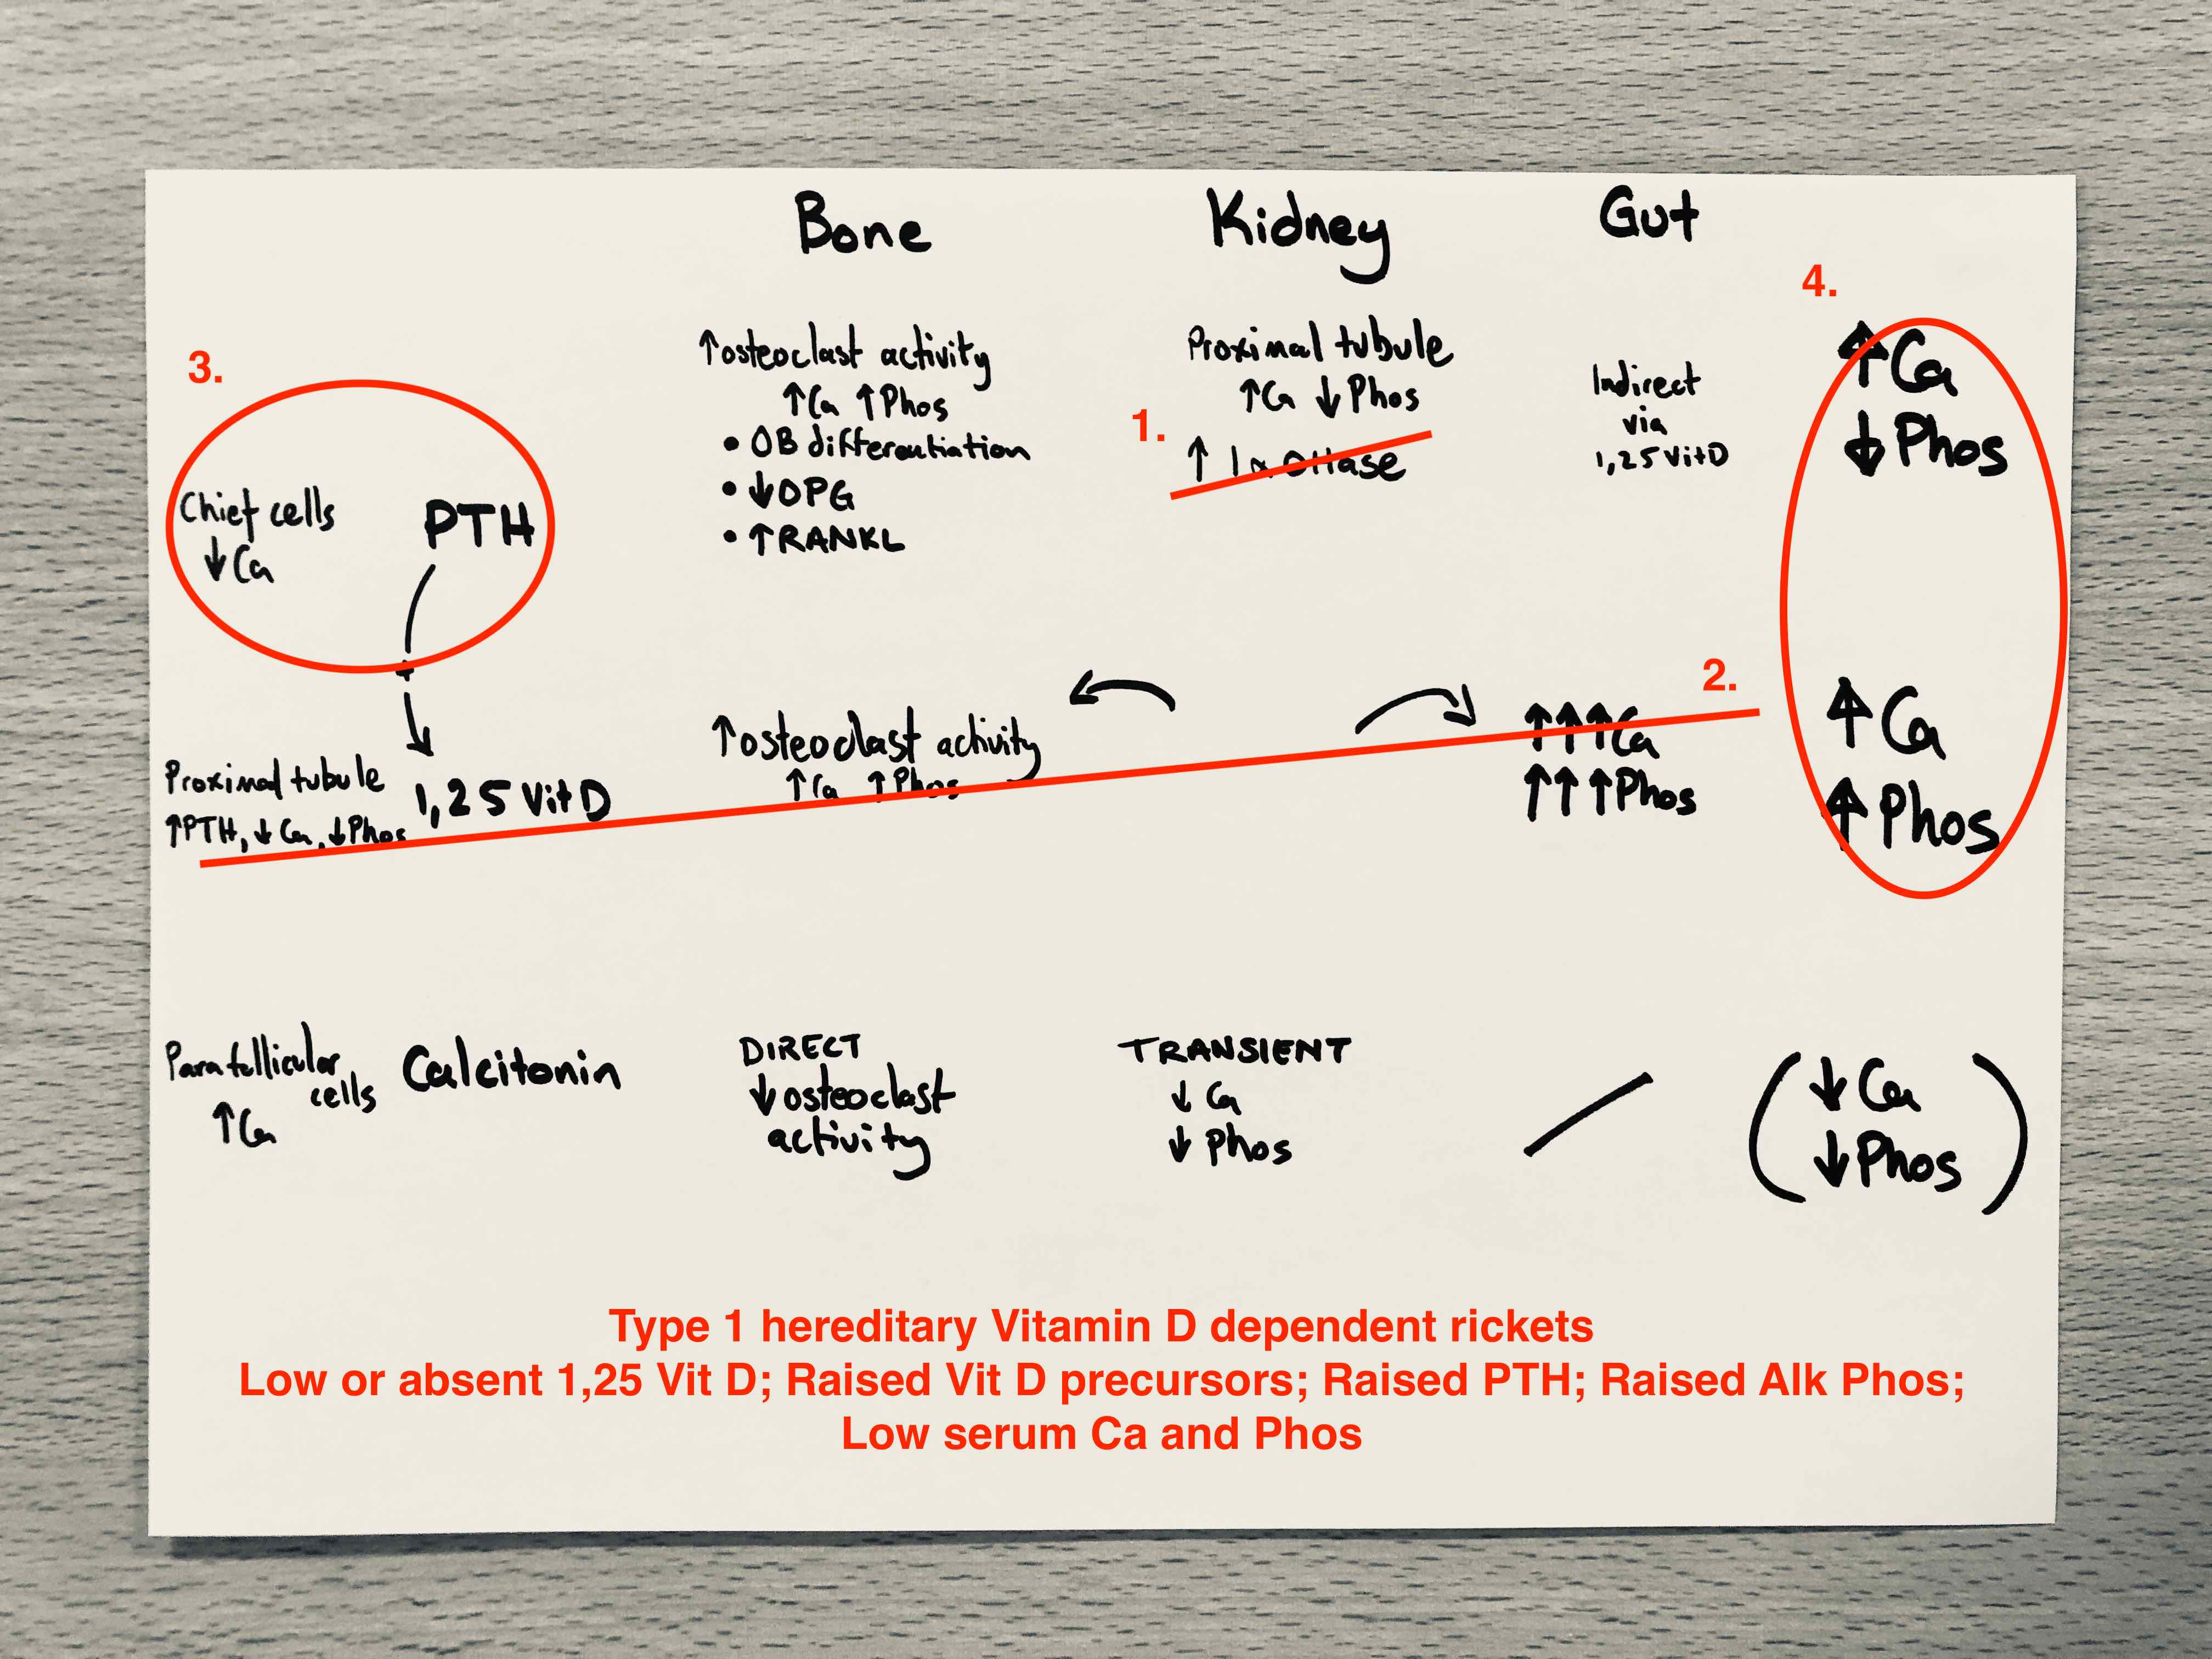 Bone
Kidney
Gut
4.
↑Ca
↓Phos
3.
↑osteoclast activity
↑Ca ↑Phos
• OB differentiation
• ↓OPG
• ↑RANKL
Proximal tubule
↑Ca ↓Phos
1.
↑ 1α OHase
Indirect
via
1,25 VitD
Chief cells
↓Ca
PTH
+
2.
Proximal tubule
↑PTH, ↓Ca, ↓Phos
1,25 Vit D
↑osteoclast activity
↑Ca ↑Phos
↑↑↑Ca
↑↑↑Phos
↑Ca
↑Phos
Parafollicular
cells
↑Ca
Calcitonin
DIRECT
↓osteoclast
activity
TRANSIENT
↓ Ca
↓ Phos
(↓Ca
↓Phos)
Type 1 hereditary Vitamin D dependent rickets
Low or absent 1,25 Vit D; Raised Vit D precursors; Raised PTH; Raised Alk Phos;
Low serum Ca and Phos